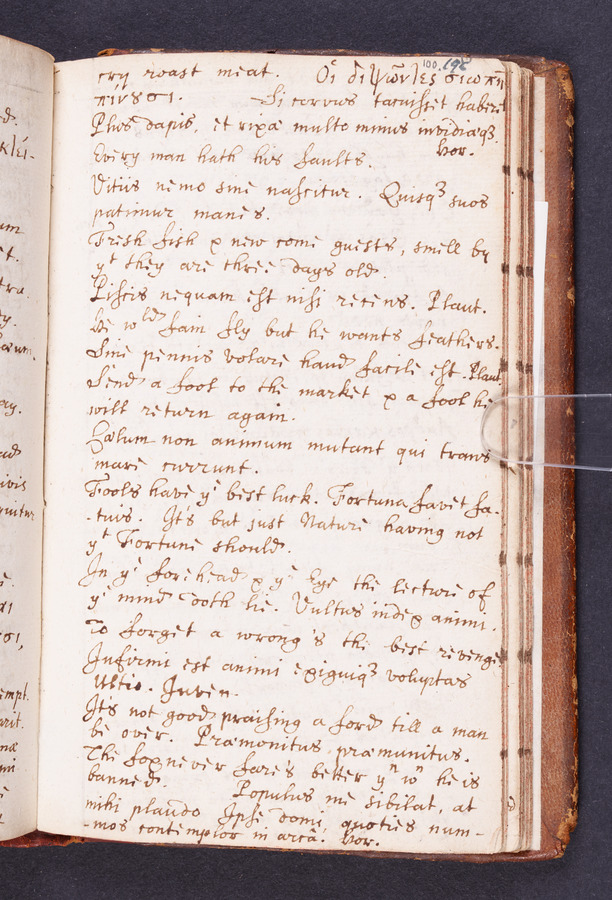 100 196
cry roast meat. Οἱ διψῶντες σιωπῇ
πίνουσι. Si corvus tacuisset haberet
Plus dapis, et rixæ multo minus invidiæq3.
Hor.
Every man hath his faults.
Vitiis nemo sine nascitur. Quisq3 suos
patimur manes.
Fresh fish & new come guests, smell by
yt they are three days old.
Piscis nequam est nisi recens. Plaut.
He wold fain fly but he wants feathers.
Sine pennis volare haud facile est. Plaut
Send a fool to the market & a fool he
will return again.
Cælum non animum mutant qui trans
mare currunt.
Fools have ye best luck. Fortuna favet fa-
-tuis. It's but just Nature having not
yt Fortune should.
In ye forehead & ye Eye the lecture of
ye mind doth lie. Vultus index animi.
To forget a wrong's the best revenge
Infirmi est animi exiguiq3 voluptas
Ultio. Juven.
It's not good praising a ford till a man
be over. Præmonitus præmunitus.
The fox never fare's better yn wn he is
banned. Populus me sibilat, at
mihi plaudo Ipse domi, quoties num-
-mos contemplor in arcâ. Hor.